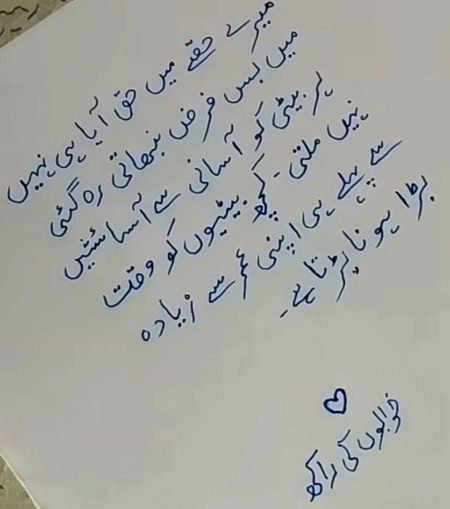 میرے حصّے میں حق آیا ہی نہیں
میں بس فرض نبھاتی رہ گئی
ہر بیٹی کو آسانی سے آسائشیں
نہیں ملتی۔ کچھ بیٹیوں کو وقت
سے پہلے ہی اپنی عمر سے زیادہ
بڑا ہونا پڑتا ہے۔
♡
خوابوں کی راکھ